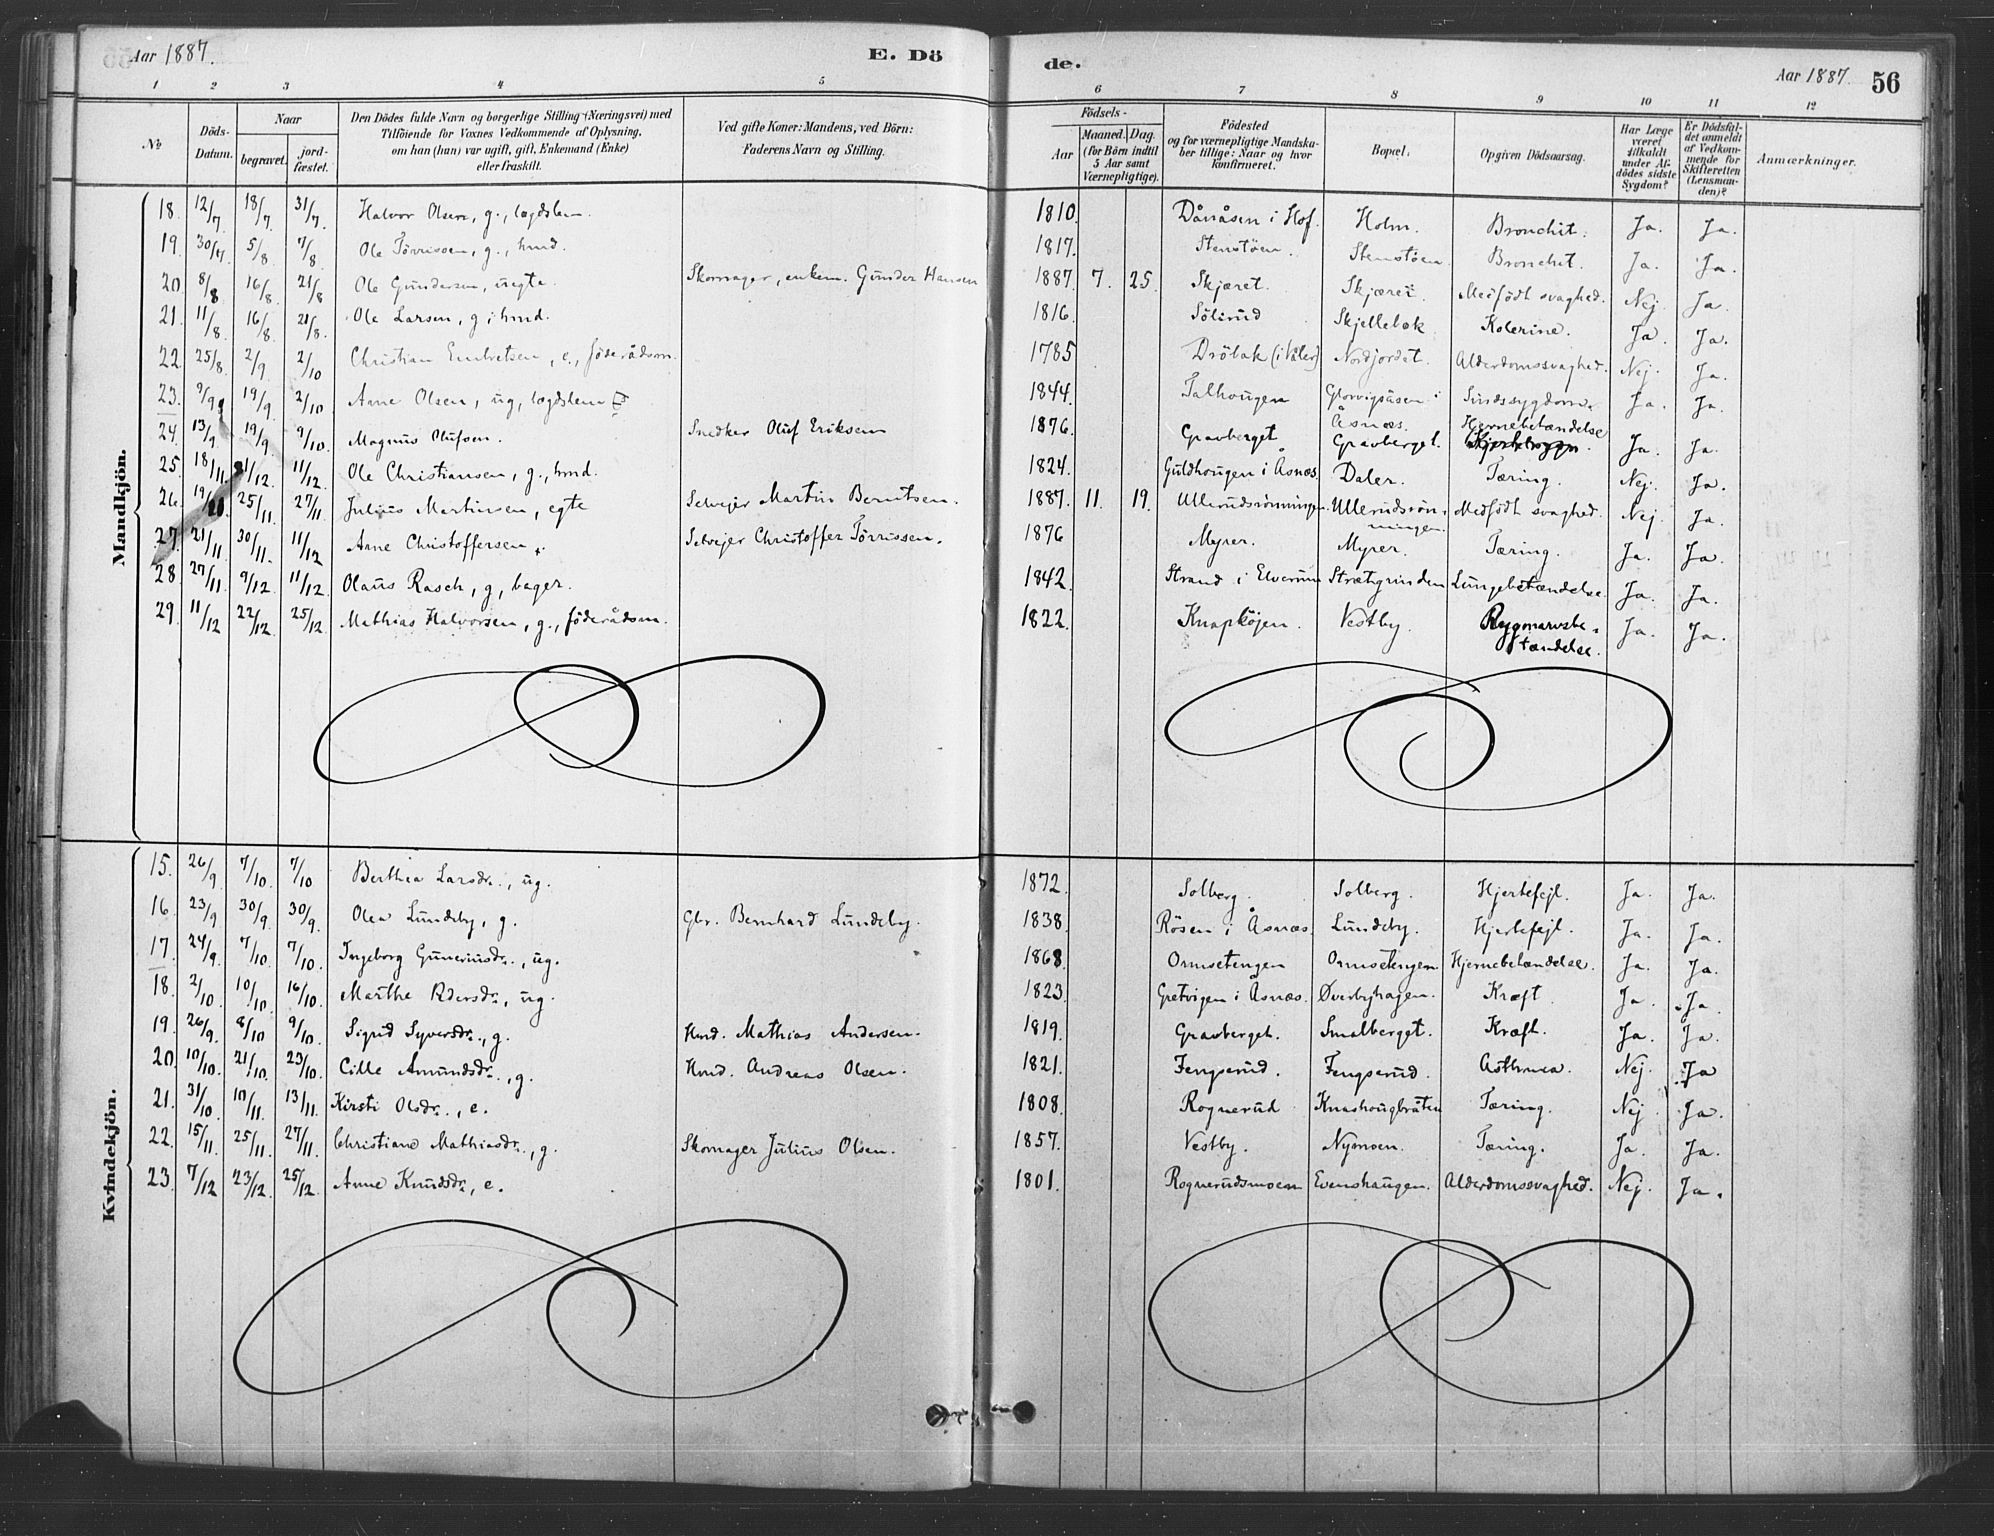 Aar 1887.
E. Dö
de.
Aar 1887.
56
1 2 3 4 5 6 7 8 9 10 11 12
№
Döds-Datum.
Naar
begravet.
jord-fæstet.
Den Dödes fulde Navn og borgerlige Stilling (Næringsvei) med
Tilföiende for Voxnes Vedkommende af Oplysning,
om han (hun) var ugift, gift, Enkemand (Enke)
eller fraskilt.
Ved gifte Koner: Mandens, ved Börn:
Faderens Navn og Stilling.
Födsels-
Aar
Maaned. Dag.
(for Börn indtil
5 Aar samt
Værnepligtige).
Födested
og for værnepligtige Mandska-
ber tillige: Naar og hvor
konfirmeret.
Bopæl.
Opgiven Dödsaarsag.
Har Læge
været
tilkaldt
under Af-
dödes sidste
Sygdom?
Er Dödsfal-
det anmeldt
af Vedkom-
mende for
Skifteretten
(Lensman-
den)?
Anmærkninger.
Mandkjön.
18. 12/7 18/7. 31/7. Halvor Olsen, g., lægdslem. 1810. Dånåsen i Hof. Holm. Bronchit. Ja. Ja.
19. 30/7 5/8 7/8. Ole Törrissen, g., hmd. 1817. Stenstöen. Stenstöen. Bronchit. Ja. Ja.
20. 8/8 16/8. 21/8 Ole Gundersen, uegte. Skomager, enkem. Gunder Hansen 1887. 7. 25. Skjæret. Skjæret. Medfödt svaghed. Nej. Ja.
21. 11/8 16/8. 21/8. Ole Larsen, g., hmd. 1816. Sölirud Skjellebæk. Kolerine. Ja. Ja.
22. 25/8 2/9. 2/10 Christian Embretsen, e., föderådsm. 1785 Dröbak (i Våler) Nordjordet. Alderdomssvaghed. Nej. Ja.
23. 9/9 19/9. 2/10 Arne Olsen, ug, lægdslem 1844. Talhougen Glorvigsåsen i Åsnæs. Sindssygdom. Ja. Ja.
24. 13/9 19/9 9/10. Magnus Olufsen. Snedker Oluf Eriksen 1876. Gravberget Gravberget. Hjernebetændelse Ja. Ja.
25. 18/11. 1/12. 11/12. Ole Christiansen, g., hmd. 1824. Guldhougen i Åsnæs. Daler. Tæring. Nej. Ja.
26. 19/11 25/11. 27/11. Julius Martinsen, egte Selvejer Martin Berntsen. 1887. 11. 19. Ullerudsrönningen. Ullerudsrön-ningen. Medfödt svaghed. Nej. Ja.
27. 21/11. 30/11. 11/12 Arne Christoffersen. Selvejer Christoffer Törrissen. 1876 Myrer. Myrer. Tæring. Ja. Ja.
28 27/11. 9/12 11/12. Olaus Rasch, g, bager. 1842. Strand i Elverum Strætegrinden Lungebetændelse. Ja. Ja.
29. 11/12 22/12. 25/12. Mathias Halvorsen, g., föderådsm. 1822. Knapköjen. Vestby. Rygmarvsbe-tændelse. Ja. Ja.
Kvindekjön.
15. 26/9. 7/10. 7/10 Berthea Larsdr., ug. 1872. Solberg. Solberg. Hjertefejl. Ja. Ja.
16. 23/9 30/9. 30/9. Olea Lundeby, g. Gbr. Bernhard Lundeby. 1838. Rösen i Åsnæs. Lundeby. Hjertefejl. Ja. Ja.
17. 24/9. 7/10. 7/10. Ingeborg Guneriusdr., ug. 1868. Ormsetengen Ormsetengen. Hjernebetændelse. Ja. Ja.
18. 2/10. 10/10. 16/10. Marthe Pedersdr., ug. 1823. Gretvigen i Åsnæs. Överbyhagen. Kræft. Ja. Ja.
19. 26/9. 8/10 9/10. Sigrid Syversdr., g. Hmd. Mathias Andersen. 1819. Gravberget. Smalberget. Kræft. Ja. Ja.
20. 10/10. 21/10. 23/10. Cille Amundsdr., g. Hmd. Andreas Olsen. 1821. Fengserud. Fengserud. Asthma. Nej. Ja
21. 31/10. 10/11. 13/11. Kirsti Olsdr., e. 1808. Rognerud Knashougbråten Tæring. Nej. Ja.
22. 15/11. 25/11. 27/11. Christiane Mathiasdr., g. Skomager Julius Olsen. 1857. Vestby. Nymoen. Tæring. Ja. Ja.
23. 7/12 23/12. 25/12. Anne Knudsdr., e. 1801. Rognerudsmoen Evenshaugen. Alderdomssvaghed. Nej. Ja.